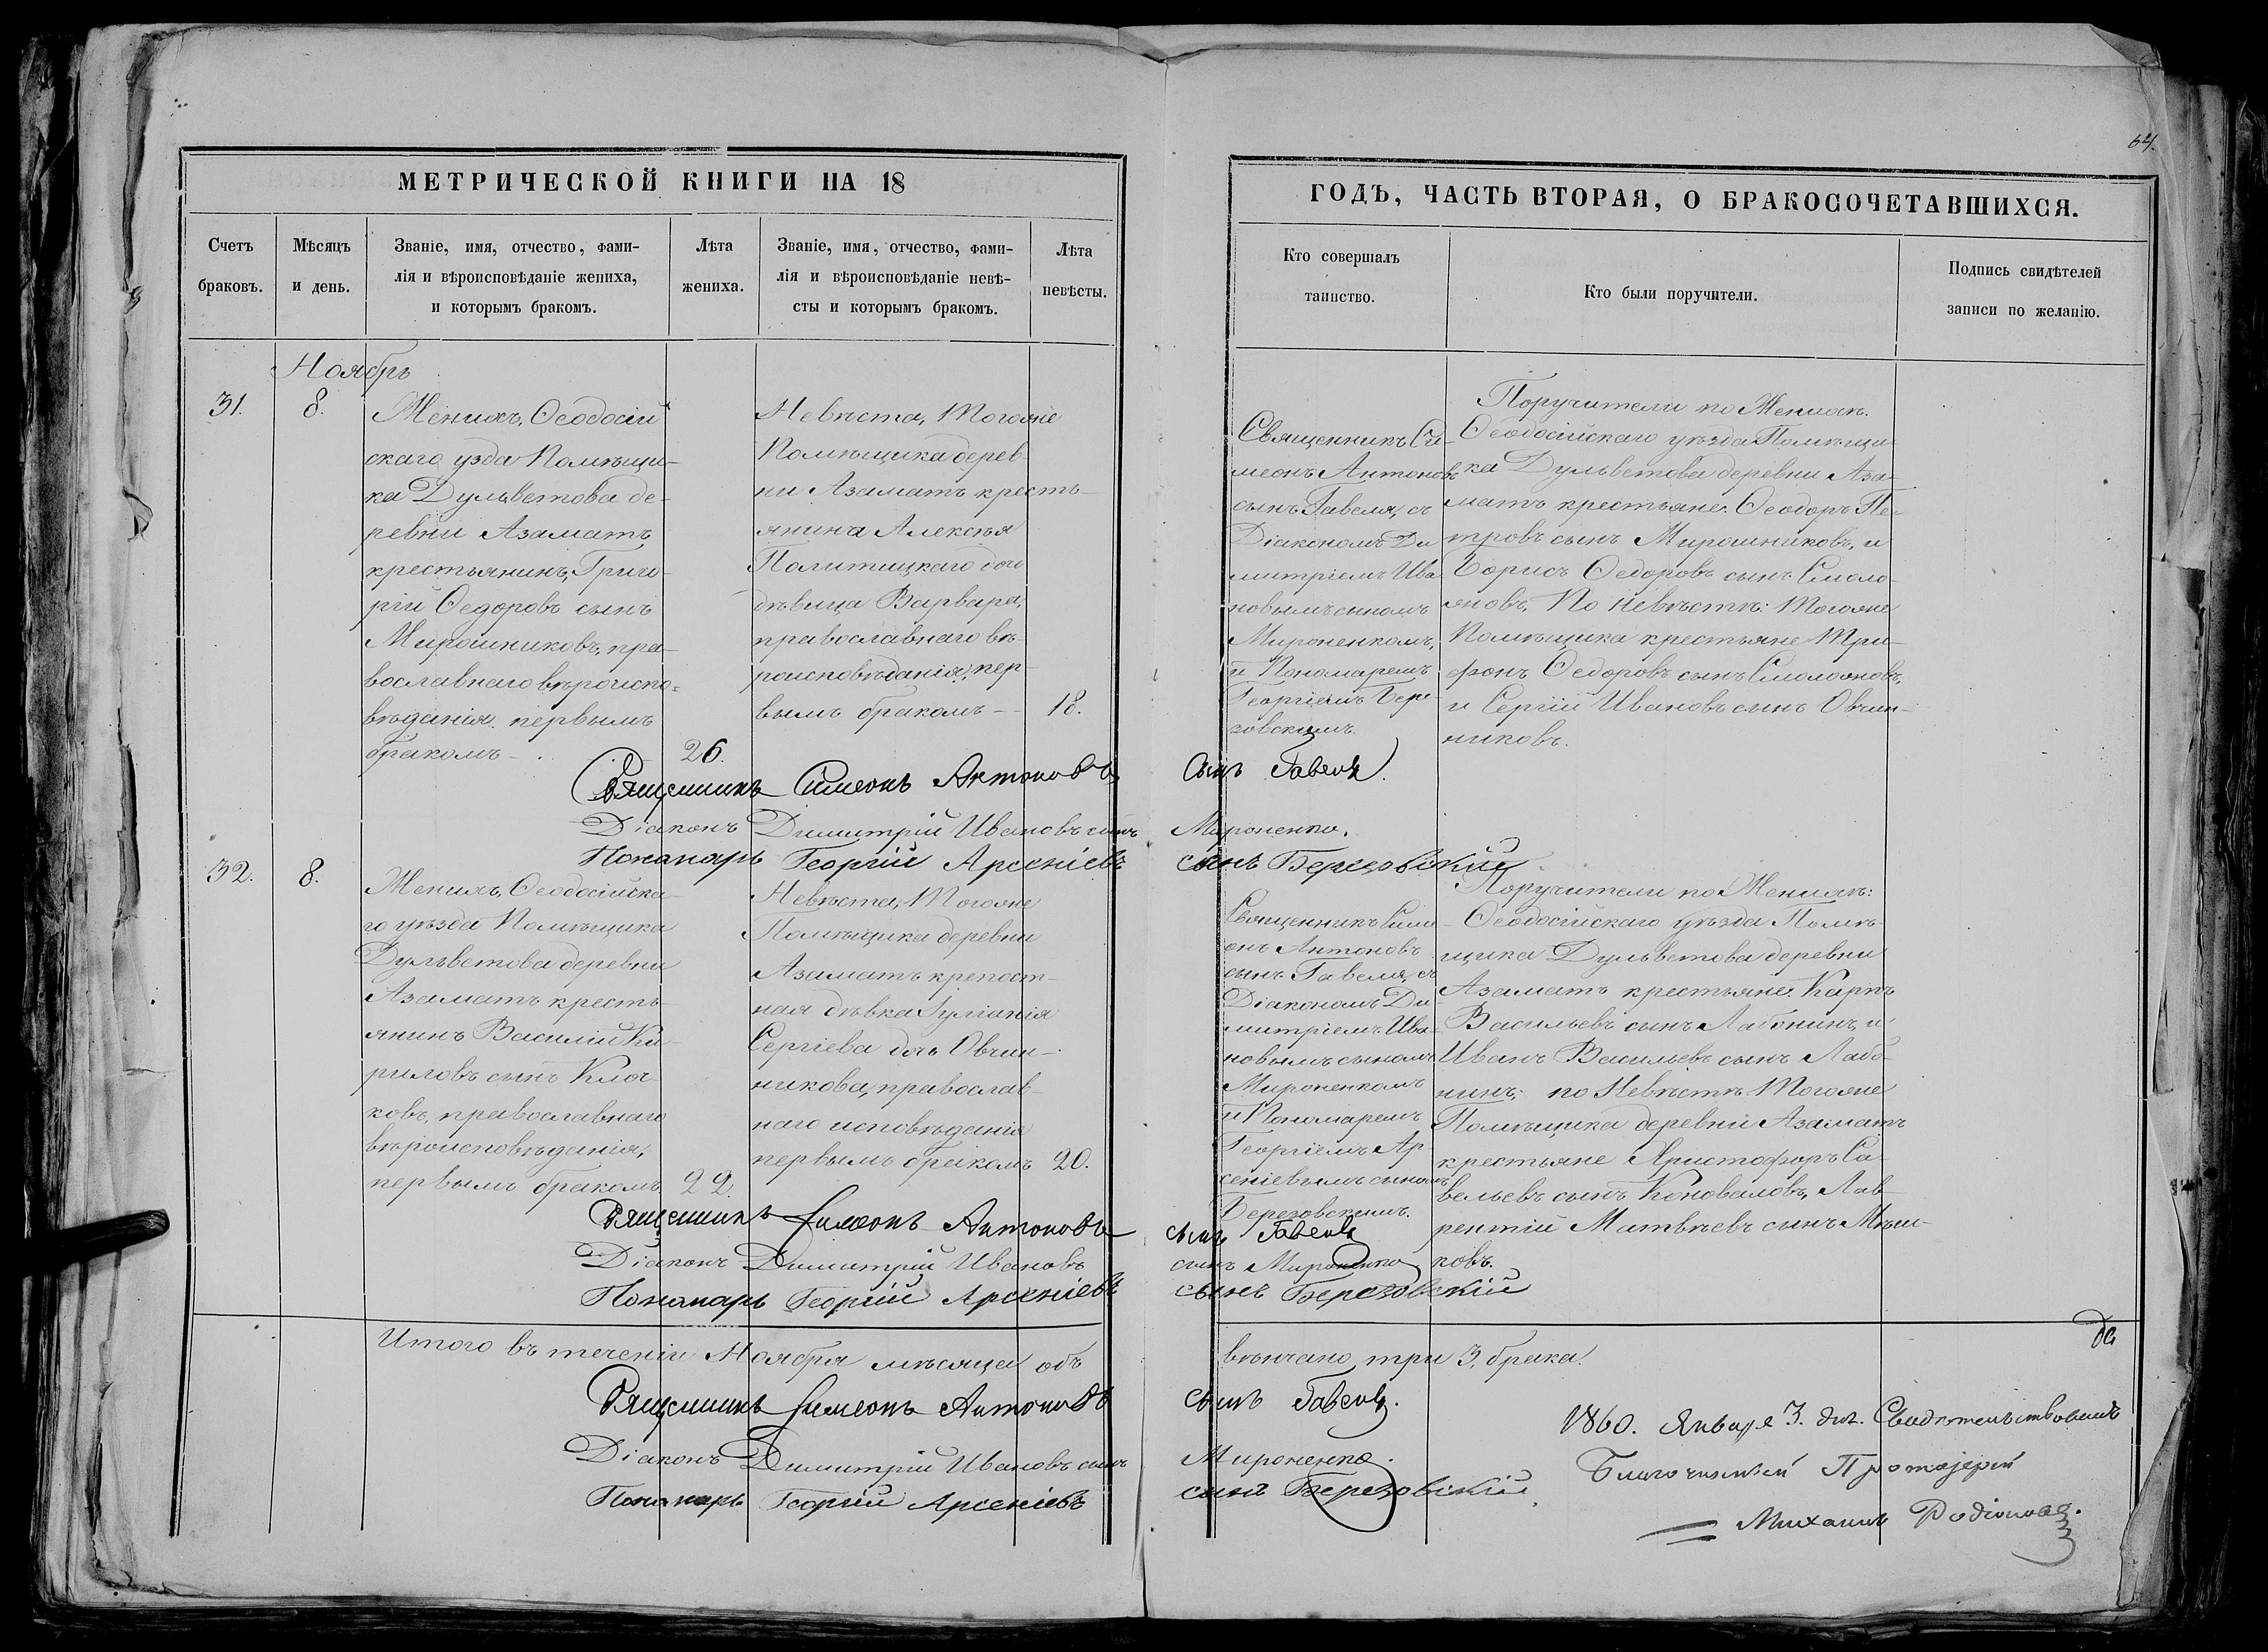 64.
МЕТРИЧЕСКОЙ КНИГИ НА 18
Счетъ
браковъ.
Мѣсяцъ
и день.
Званіе, имя, отчество, фами-
лія и вѣроисповѣданіе жениха,
и которымъ бракомъ.
Лѣта
жениха.
Званіе, имя, отчество, фами-
лія и вѣроисповѣданіе невѣ-
сты и которымъ бракомъ.
Лѣта
невѣсты.
ГОДЪ, ЧАСТЬ ВТОРАЯ, О БРАКОСОЧЕТАВШИХСЯ.
Кто совершалъ
таинство.
Кто были поручители.
Подпись свидѣтелей
записи по желанію.
Ноябрь
31.
8.
Женихъ, Ѳеодосій
скаго узда Помѣщи-
ка Дульветова де-
ревни Азаматъ
крестьянинъ, Григо-
рій Ѳедоровъ сынъ
Мирошниковъ, пра-
вославнаго вѣроиспо-
вѣданія первымъ
бракомъ
26.
Невѣста, Тогоже
Помѣщика дерев-
ни Азаматъ кресть-
янина Алексѣя
дочь
дѣвица Варвара,
православнаго вѣ-
роисповѣданія, пер-
вымъ бракомъ
18.
Священникъ Си-
меонъ Антоновъ
сынъ Гавеля, съ
Діакономъ Ди
митріемъ Ива
новымъ сыномъ
Мироненкомъ,
и Пономаремъ
Георгіемъ Бере
зовскимъ.
Поручители по Женихѣ.
Ѳеодосійскаго уѣзда Помѣщи
ка Дульветова деревни Аза-
матъ крестьяне: Ѳеодоръ Пе-
тровъ сынъ Мирошниковъ, и
Борисъ Ѳедоровъ сынъ Смоло-
яновъ, По Невѣстѣ: Тогоже
Помѣщика крестьяне Три-
фонъ Ѳедоровъ сынъ Смолояновъ,
и Сергій Ивановъ сынъ Овчин-
никовъ.
Священникъ Симеонъ Антоновъ сынъ Гавеля.
Діаконъ Димитрій Ивановъ сынъ Мироненко.
Понамарь Георгій Арсеніевъ сынъ Березовскій
32.
8.
Женихъ, Ѳеодосійска
го уѣзда Помѣщика
Дульветова деревни
Азаматъ кресть-
янинъ Василій Ки-
риловъ сынъ Клоч-
ковъ, православнаго
вѣроисповѣданія,
первымъ бракомъ
22.
Невѣста, Тогоже
Помѣщика деревни
Азаматъ крепост-
ная дѣвка Іуліанія
Сергіева дочь Овчин-
никова, православ-
наго исповѣданія
первымъ бракомъ
20.
Священникъ Симе
онъ Антоновъ
сынъ Гавеля, съ
Діакономъ Ди-
митріемъ Ива-
новымъ сыномъ
Мироненкомъ
и Пономаремъ
Георгіемъ Ар
сеніевымъ сыномъ
Березовскимъ.
Поручители по Женихѣ:
Ѳеодосійскаго уѣзда Помѣ-
щика Дульветова деревни
Азаматъ крестьяне: Карпъ
Васильевъ сынъ Лабонинъ, и
Иванъ Васильевъ сынъ Лабо-
нинъ; по Невѣстѣ Тогоже
Помѣщика деревни Азаматъ
крестьяне Христофоръ Са-
вельевъ сынъ Коноваловъ, Лав-
рентій Матвѣевъ сынъ Мѣш-
ковъ.
Священникъ Симеонъ Антоновъ сынъ Гавеля
Діаконъ Димитрій Ивановъ сынъ Мироненко
Понамарь Георгій Арсеніевъ сынъ Березовскій
Итого въ теченіи Ноября мѣсяца объ вѣнчано три 3, брака.
Священникъ Симеонъ Антоновъ сынъ Гавеля.
Діаконъ Димитрій Ивановъ сынъ Мироненко.
Понамарь Георгій Арсеніевъ сынъ Березовскій
1860. Января 3. дня. Свидѣтельствовалъ
Благочинный Протоіерей
Михаилъ Родіоновъ.